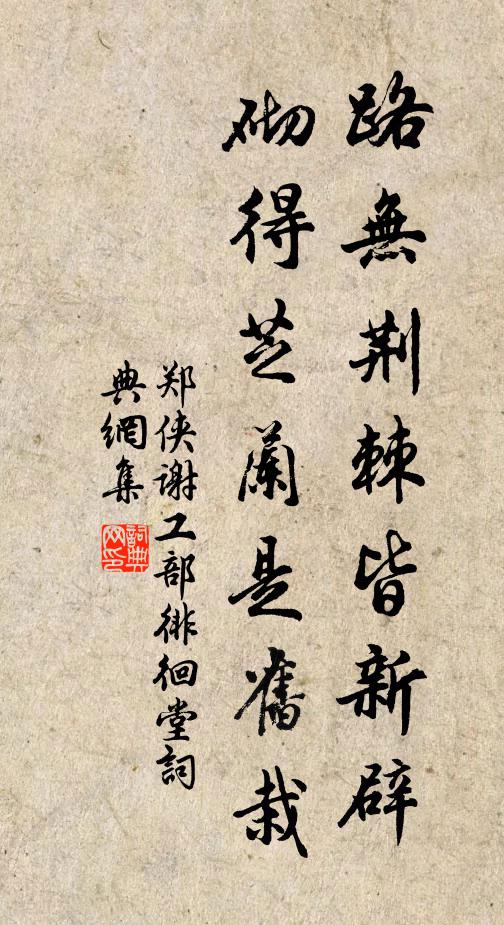 路無荆棘皆新辟
砌得芝蘭是舊栽
郑侠谢工部徘徊堂詞
典網集
詞典
网印